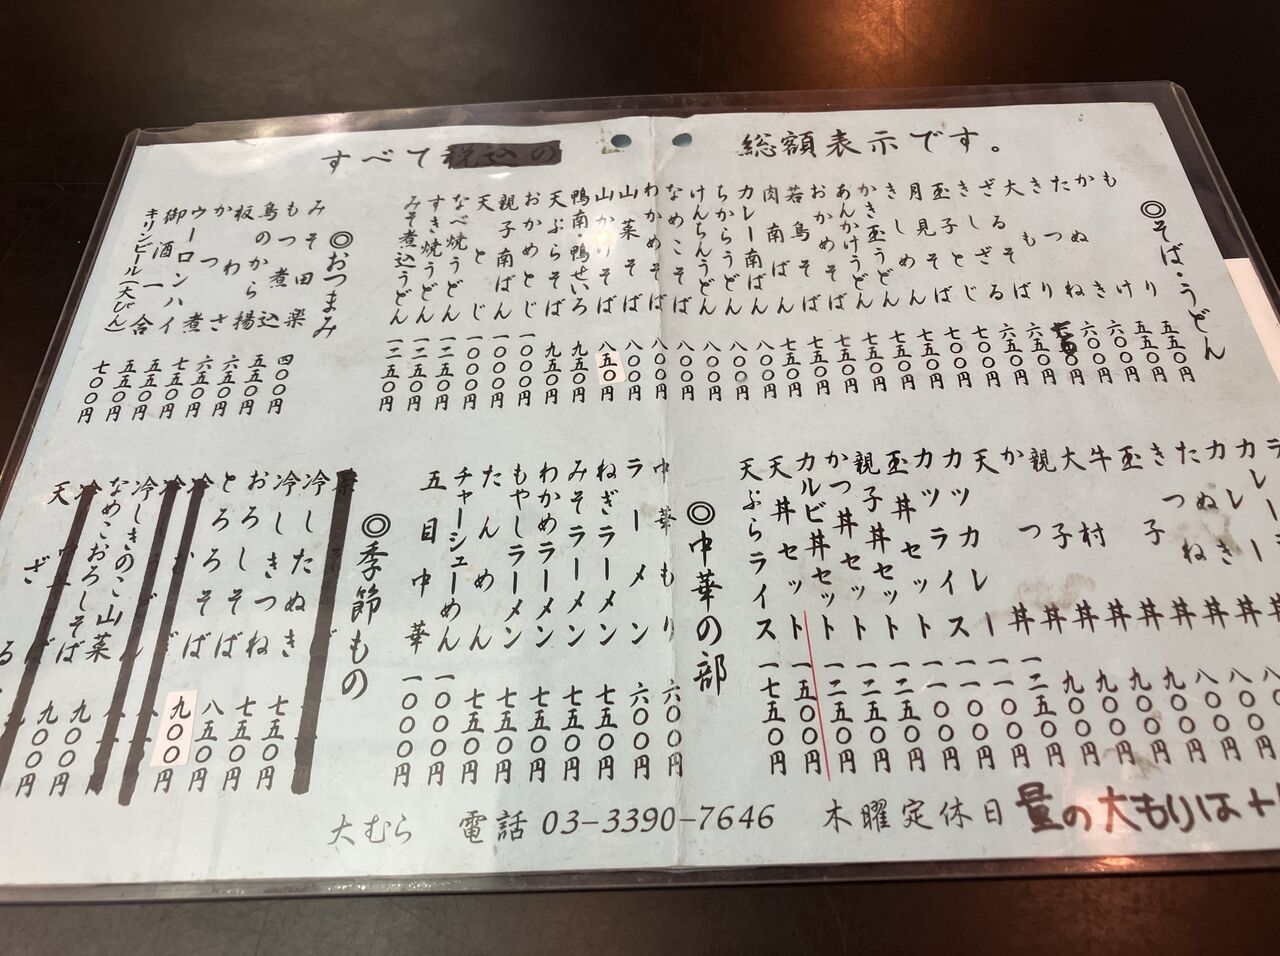 すべて
総額表示です。
◎そば・うどん
もり 五五〇円
かけ 五五〇円
たぬき 六〇〇円
きつね 六〇〇円
大もり
ざるそば 六五〇円
きしざる 六五〇円
玉子とじ 七〇〇円
月見そば 七〇〇円
きしめん 七五〇円
かき玉うどん 七五〇円
あんかけうどん 七五〇円
おかめそば 七五〇円
若鳥そば 七五〇円
肉南ばん 七五〇円
カレー南ばん 八〇〇円
ちからうどん 八〇〇円
けんちんうどん 八〇〇円
なめこそば 八〇〇円
わかめそば 八〇〇円
山菜そば 八〇〇円
山かけそば 八五〇円
鴨南・鴨せいろ 九五〇円
天ぷらそば 九五〇円
おかめとじ 一〇〇〇円
親子南ばん 一〇〇〇円
天とじ 一〇〇〇円
なべ焼うどん 一二五〇円
すき焼うどん 一二五〇円
みそ煮込うどん 一二五〇円
◎おつまみ
みそ田楽 四〇〇円
もつ煮込 五五〇円
鳥のから揚 六五〇円
板わさ 六五〇円
かつ煮 七五〇円
ウーロンハイ 五五〇円
御酒一合 五五〇円
キリンビール(大びん) 七〇〇円
カレー丼 八〇〇円
玉子丼
牛丼
大村丼
親子丼
かつ丼
天丼 一二五〇円
カツカレー
カツライス
玉丼セット
親子丼セット 一二五〇円
かつ丼セット 一二五〇円
カルビ丼セット 一二五〇円
天丼セット 一五〇〇円
天ぷらライス 一七五〇円
◎中華の部
中華もり 六〇〇円
ラーメン 六〇〇円
ねぎラーメン 七五〇円
みそラーメン 七五〇円
わかめラーメン 七五〇円
もやしラーメン 七五〇円
たんめん 七五〇円
チャーシューめん 一〇〇〇円
五目中華 一〇〇〇円
◎季節もの
冷したぬき 七五〇円
冷しきつね 七五〇円
おろしそば 八五〇円
とろろそば 九〇〇円
冷しきのこ山菜 九〇〇円
なめこおろしそば 九〇〇円
天ざる
大むら 電話 03-3390-7646 木曜定休日 量の大もりは+